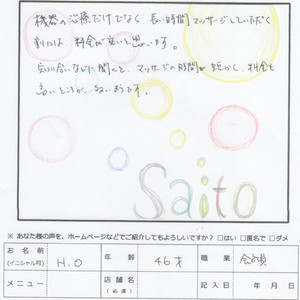 機器の治療だけでなく、長い時間マッサージしていただく
割には、料金が安いと思いです。
知り合いなどに聞くと、マッサージの時間が短かく、料金も
高いところが多いようです。
Saito
※あなた様の声を、ホームページなどでご紹介してもよろしいですか？ □はい □匿名で □ダメ
お名前 (イニシャル可) H.O 年齢 46才 職業 会社員
メニュー 店舗名 (必須) 記入日 年 月 日